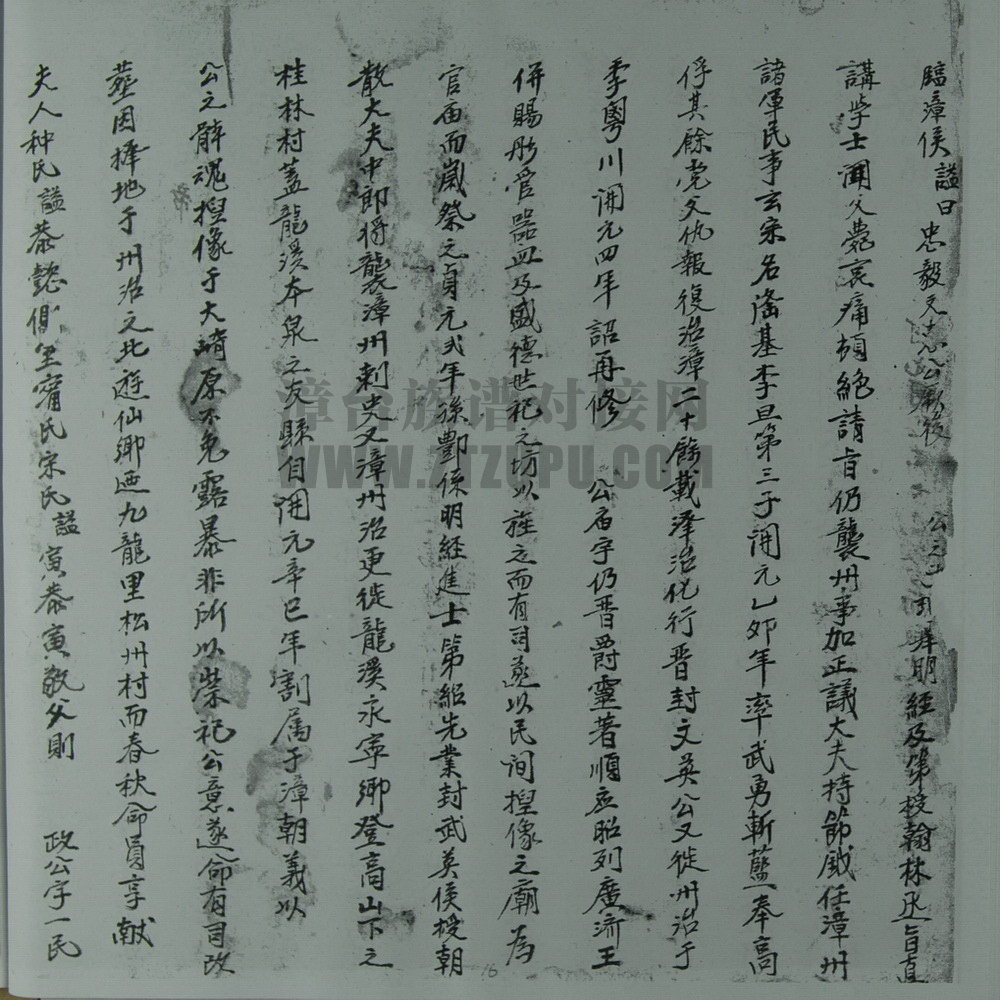 臨漳侯謚曰忠毅文惠公 後 公之子 珦舉明經及第授翰林丞旨直
講学士聞父薨哀痛頓絶請旨仍襲州事加正議大夫持節戚任漳州
諸軍民事玄宗名隆基李旦第三子開元乙卯年率武勇斬藍奉高
俘其餘党父仇報復治漳二十餘載泽治化行晋封文英公又徙州治于
李粤川開元四年 詔再修 公庙宇仍晋爵靈著順应昭列廣济王
併賜彤管器皿及盛德世祀之坊以旌之而有司遂以民间揑像之廟為
官庙而嵗祭之貞元弍年孫酆係明經進士第紹先業封武英侯授朝
散大夫中郎将襲漳州刺史又漳州治更徙龍溪永寧鄉登高山下之
桂林村蓋龍溪本泉之友縣自開元辛巳年割属于漳朝義以
公之辭魂揑像于大 原不免露暴非所以崇祀公意遂命有司改
塟因擇地于州治之北遊仙鄉廼九龍里松州村而春秋命員享献
夫人种氏謚恭懿 甯氏宋氏謚寅恭寅敬父則 政公字一民
漳台族谱对接网
WWW.ZTZUPU.COM